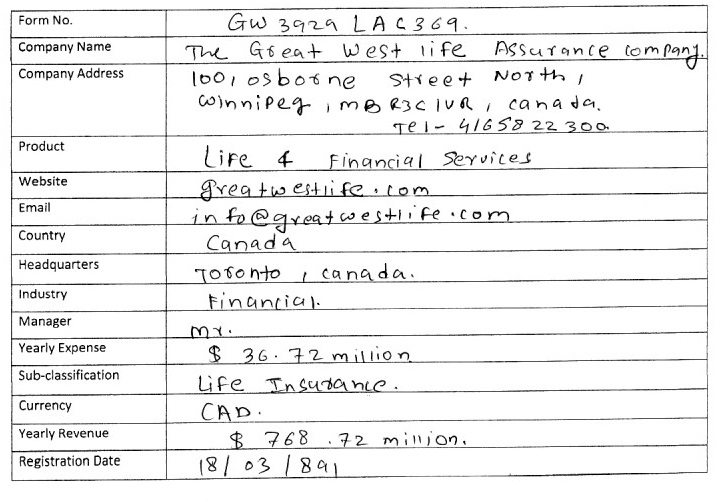 Form No. GW 3929 LAC369.
Company Name The Great West life Assurance company.
Company Address 100, osborne Street North,
Winnipeg, MB R3C 1VR, Canada.
Tel- 4165822300
Product Life & Financial Services
Website greatwestlife.com
Email info@greatwestlife.com
Country Canada
Headquarters Toronto, Canada.
Industry Financial.
Manager Mr.
Yearly Expense $ 36.72 million
Sub-classification Life Insurance.
Currency CAD.
Yearly Revenue $ 768.72 million.
Registration Date 18/03/891